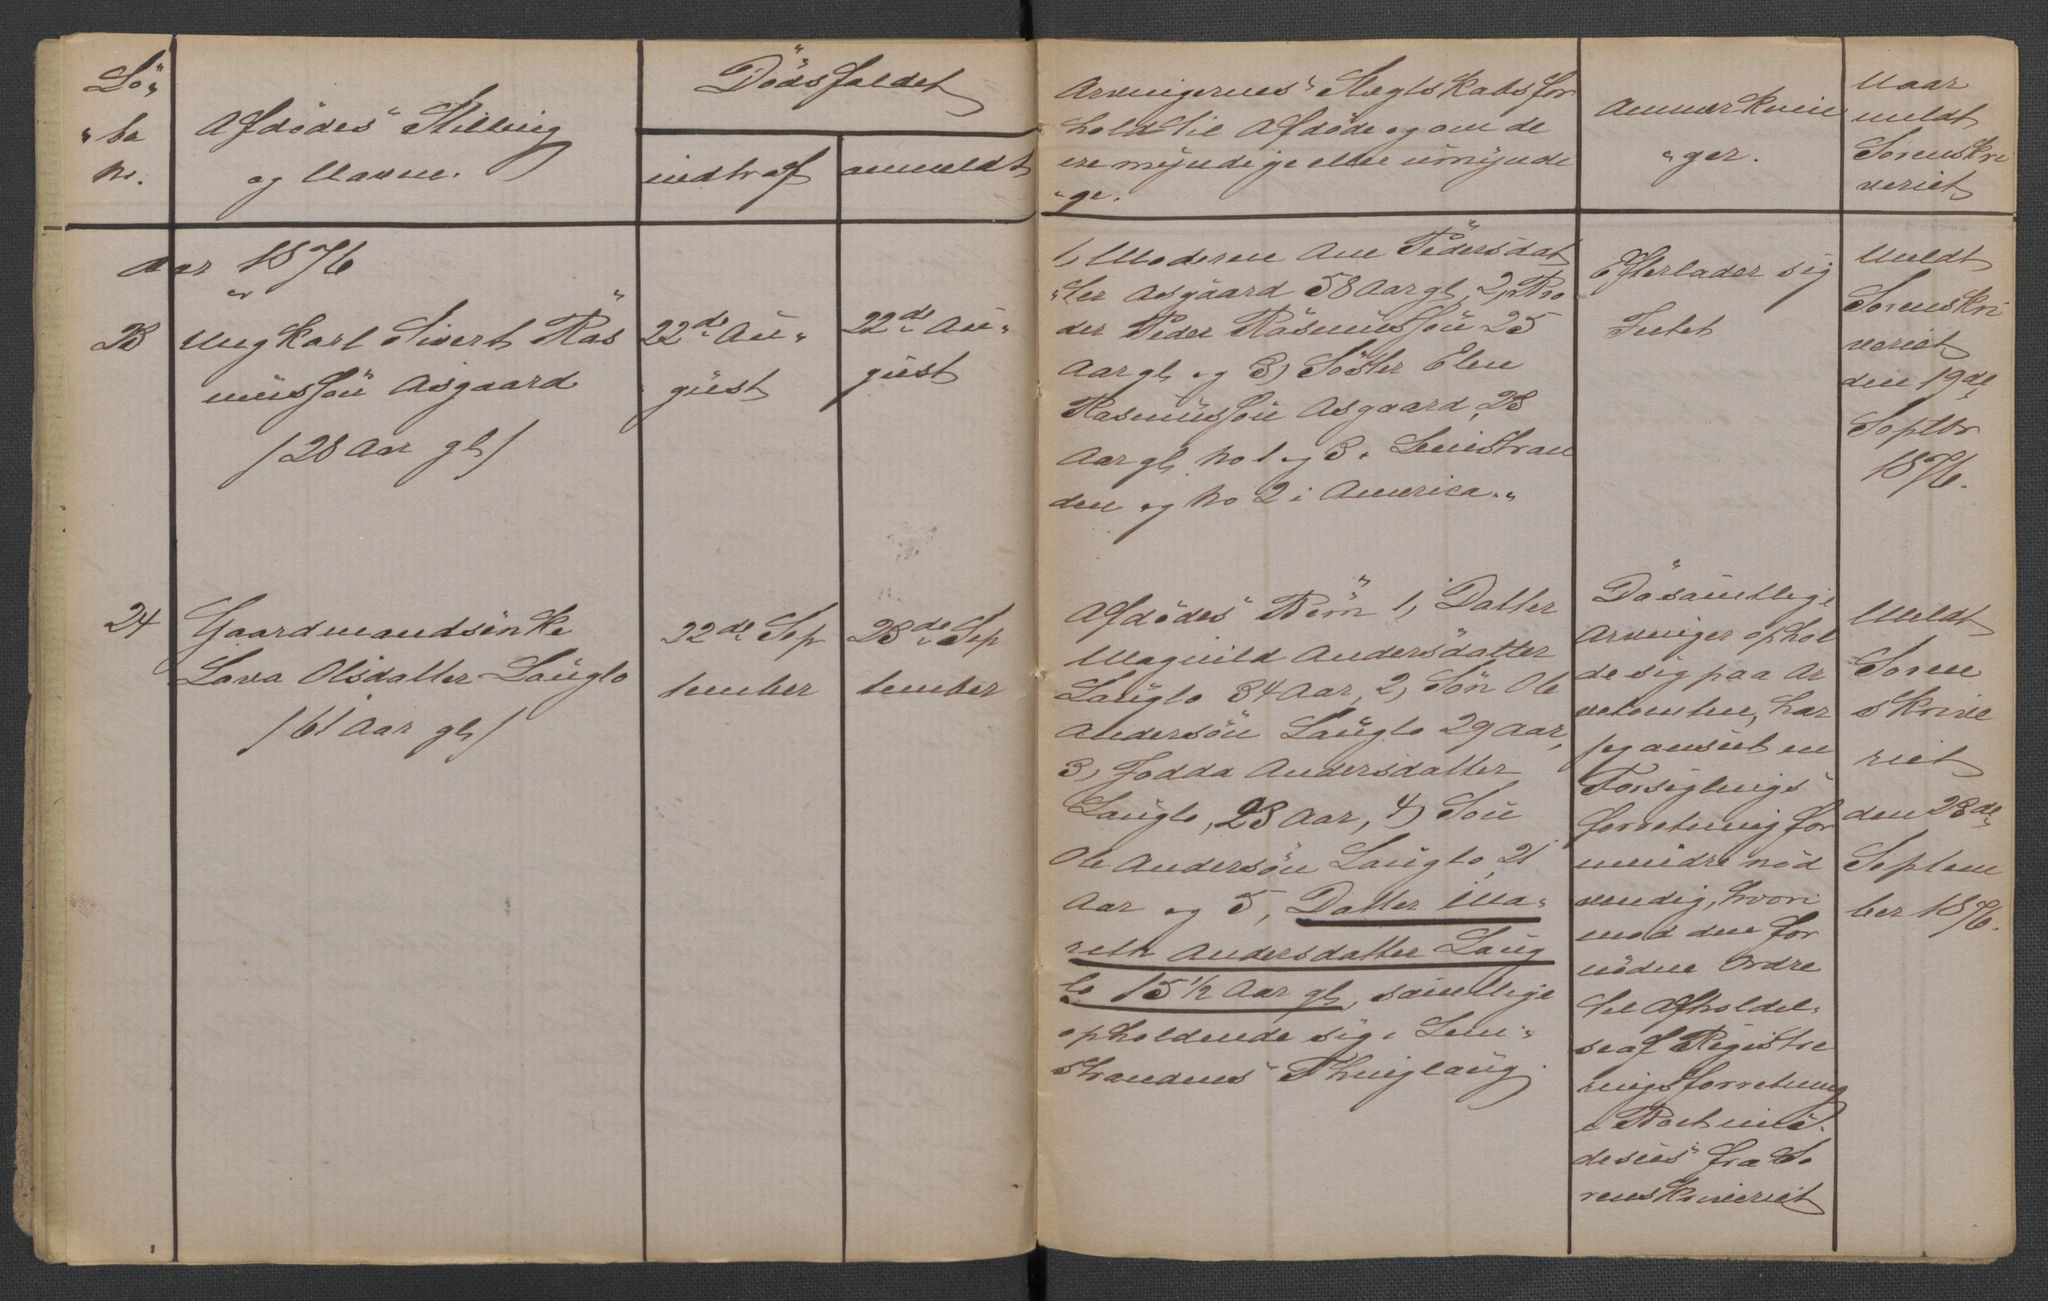 Lö-
"be
No.
Afdödes Stilling
og Navne.
Dödsfaldet
indtraf
anmeldt
Arvingernes Slegtskabsfor
hold til Afdöde og om de
ere myndige eller umynde
"ge.
Anmerknin
"ger.
Naar
meldt
Sorenskri
veriet
Aar 1876
23
Ungkarl Sivert Ras
musson Asgaard
/28 Aar gl/
22de Au-
gust
22de Au-
gust
1, Moderen Ane Pedersdat
"ter Asgaard 58 Aar gl, 2, Bro
der Peder Rasmusson 25
Aar gl, og 3, Söster Elen
Rasmusson Asgaard, 23
Aar gl, No 1 og 3 i Leinstran
den og No 2 i America."
Efterlader sig
Intet
Meldt
Sorenskri
veriet
den 19de
Septbr
1876.
24
Gaardmandsenke
Lava Olsdatter Lauglo
/61 Aar gl/
22de Sep
tember
23de Sep
tember
Afdödes Börn 1, Datter
Magnild Andersdatter
Lauglo 34 Aar, 2, Sön Ole
Andersön Lauglo 29 Aar,
3, Jodda Andersdatter
Lauglo, 23 Aar, 4, Sön
Ole Andersön Lauglo, 21
Aar og 5, Datter Ma-
reth Andersdatter Laug
lo 15 1/2 Aar gl, samtlige
opholdende sig i Lein-
strandens Thinglaug.
Da samtlige
Arvinger ophol
de sig paa Ar
vetomten, har
jeg anseet en
Forseglings
forretning for
mindre nöd
vendig, hvori
mod den for
nödne Ordre
til Afholdel-
se af Registre
ringsforretning
i Boet
fra So
renskriveriet
Meldt
Soren
skrive
riet
den 28de
Septem
ber 1876.